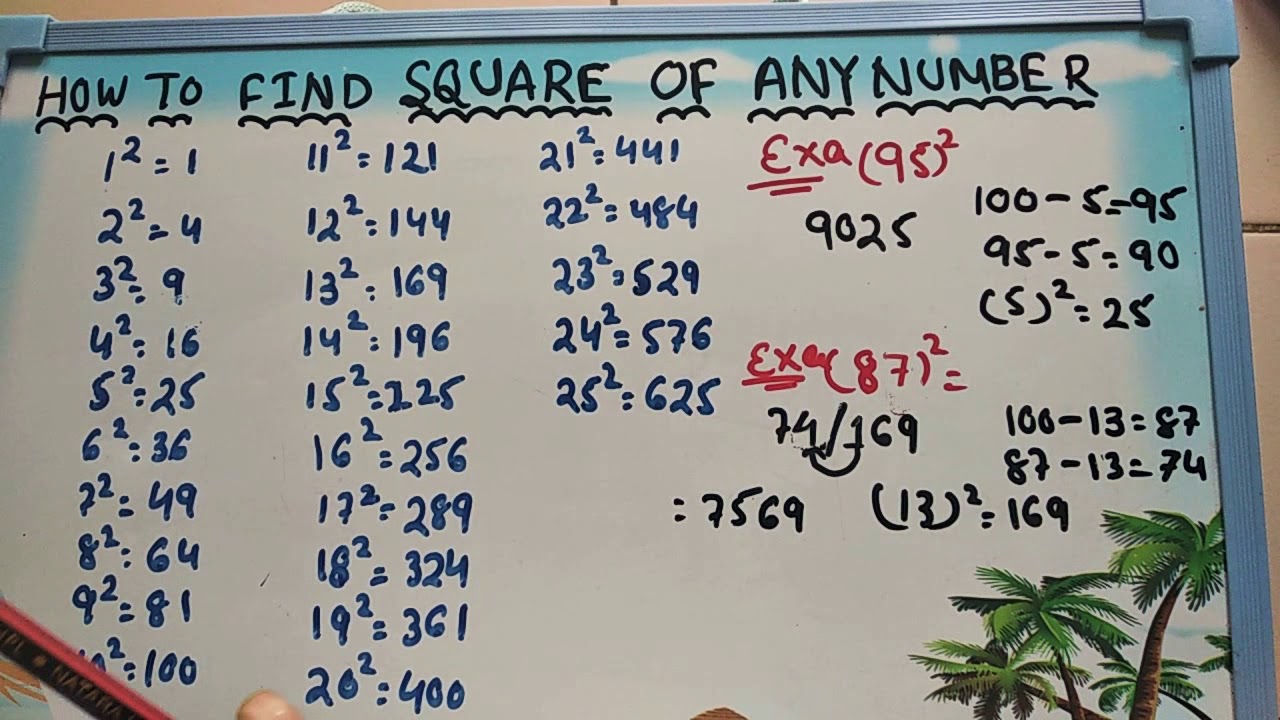 HOW TO FIND SQUARE OF ANY NUMBER
1² = 1
2² = 4
3² = 9
4² = 16
5² = 25
6² = 36
7² = 49
8² = 64
9² = 81
² = 100
11² = 121
12² = 144
13² = 169
14² = 196
15² = 225
16² = 256
17² = 289
18² = 324
19² = 361
20² = 400
21² = 441
22² = 484
23² = 529
24² = 576
25² = 625
Exa (95)²
9025
100 - 5 = 95
95 - 5 = 90
(5)² = 25
Exa (87)² =
74/169
= 7569
100 - 13 = 87
87 - 13 = 74
(13)² = 169